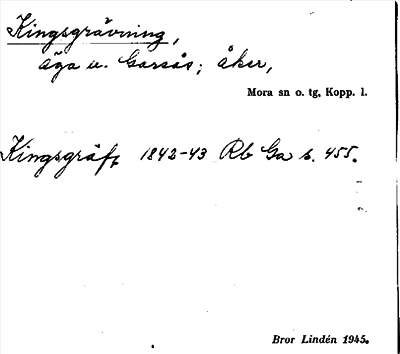 Kingsgrävning,
äga u. Garsås; åker,
Mora sn o. tg, Kopp. l.
Kingsgräft 1842-43 Rb Ga s. 455.
Bror Lindén 1945.